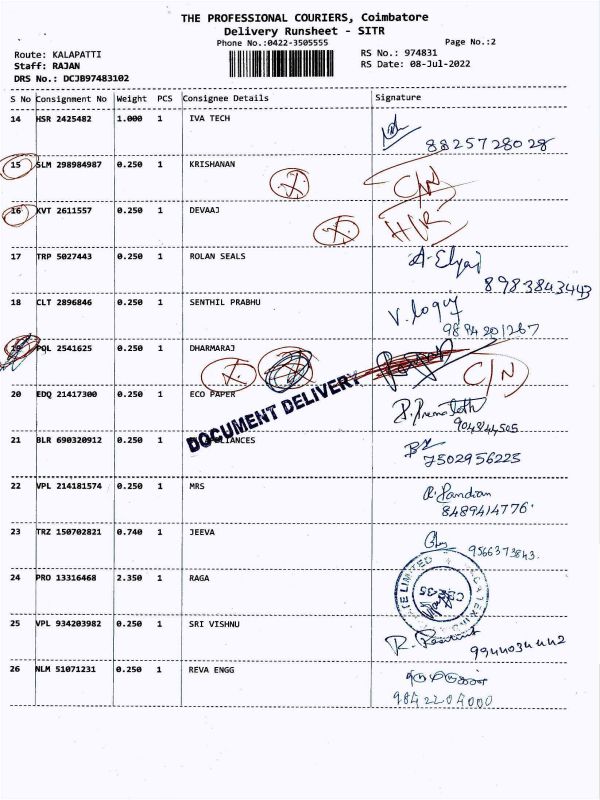 THE PROFESSIONAL COURIERS, Coimbatore
Delivery Runsheet - SITR
Phone No.:0422-3505555
Page No.:2
Route: KALAPATTI
RS No.: 974831
Staff: RAJAN
RS Date: 08-Jul-2022
DRS No.: DCJB97483102
S No Consignment No Weight PCS Consignee Details Signature
14 HSR 2425482 1.000 1 IVA TECH
8825728028
15 SLM 298984987 0.250 1 KRISHANAN
X C/N
16 KVT 2611557 0.250 1 DEVAAJ
X H/R
17 TRP 5027443 0.250 1 ROLAN SEALS
8983843443
18 CLT 2896846 0.250 1 SENTHIL PRABHU
9894201267
19 PQL 2541625 0.250 1 DHARMARAJ
X C/N
20 EDQ 21417300 0.250 1 ECO PAPER
DOCUMENT DELIVERY
904844505
21 BLR 690320912 0.250 1
7502956225
22 VPL 214181574 0.250 1 MRS
R. Pandian
8489414776
23 TRZ 150702821 0.740 1 JEEVA
9566373843
24 PRO 13316468 2.350 1 RAGA
25 VPL 934203982 0.250 1 SRI VISHNU
9944034442
26 NLM 51071231 0.250 1 REVA ENGG
9842204000